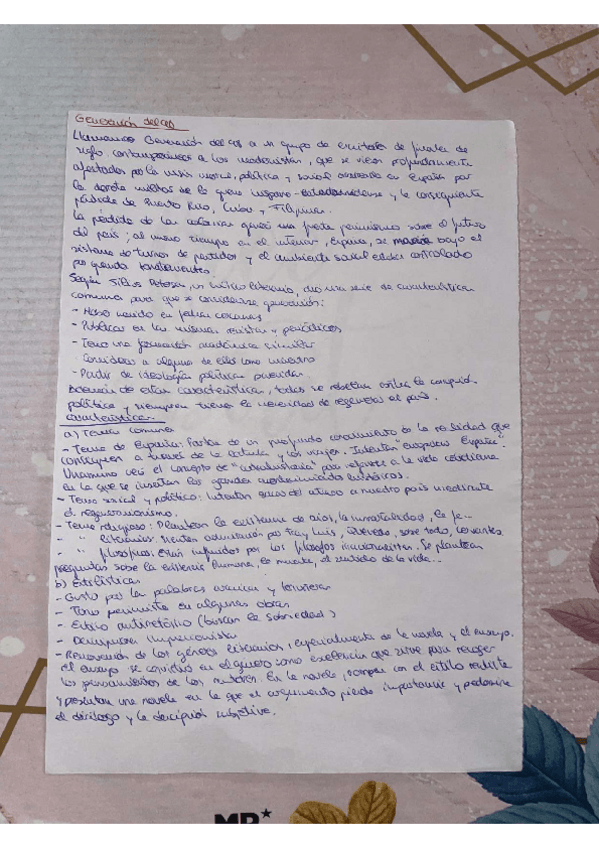 Generación del 98
Llamamos Generación del 98 a un grupo de escritores de finales de
siglo contemporáneos a los modernistas, que se vieron profundamente
afectados por la crisis moral, política y social ocurrida en España por
la derrota militar de la guerra hispano-estadounidense y la consiguiente
pérdida de Puerto Rico, Cuba y Filipinas.
La pérdida de las colonias generó una fuerte pesimismo sobre el futuro
del país; al mismo tiempo en el interior, España, se bajo el
sistema de turnos de partidos y el ambiente social estaba controlado
por
Según Petersen, un crítico literario, dio una serie de características
comunes para que se considerase generación:
- Haber nacido en fechas cercanas
- Publicar en las mismas revistas y periódicos
- Tener una formación académica similar
- Considerar a alguno de ellos como maestro
- Partir de ideología política parecida
Además de estas características, todos se rebelan contra la corrupción
política y siempre tienen la necesidad de regenerar el país.
Características
a) Temas comunes
- Tema de España: Parten de un profundo conocimiento de la realidad que
consiguen a través de la lectura y los viajes. Intentan "europeizar España".
Unamuno creó el concepto de "intrahistoria" para referirse a la vida cotidiana
en la que se insertan los grandes acontecimientos históricos.
- Tema social y político: Intentan sacar del atraso a nuestro país mediante
el regeneracionismo.
- Tema religioso: Plantean la existencia de dios, la inmortalidad, la fe...
- " literarios: Sienten admiración por Fray Luis, Quevedo, sobre todo, Cervantes.
- " filosófico: Están influidos por los filósofos irracionalistas. Se plantean
preguntas sobre la existencia humana, la muerte, el sentido de la vida...
b) Estilísticas
- Gusto por las palabras arcaicas y terruñeras
- Tono pesimista en algunas obras
- Estilo antirretórico (buscan la sobriedad)
- Descripciones impresionistas
- Renovación de los géneros literarios, especialmente de la novela y el ensayo.
El ensayo se convirtió en el género como excelencia que sirve para recoger
los pensamientos de los autores. En la novela, rompen con el estilo realista
y presentan una novela en la que el argumento pierde importancia y predomina
el diálogo y la descripción subjetiva.
MR